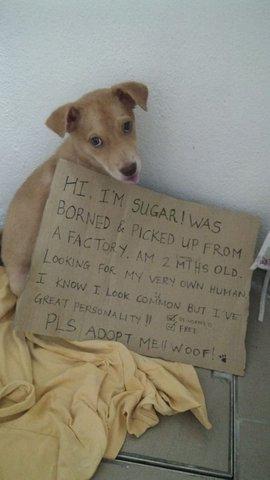 HI, I'M SUGAR! WAS
BORNED & PICKED UP FROM
A FACTORY. AM 2 MTHS OLD.
LOOKING FOR MY VERY OWN HUMAN.
I KNOW I LOOK COMMON BUT I'VE
GREAT PERSONALITY!!
FREE
PLS, ADOPT ME!! WOOF!